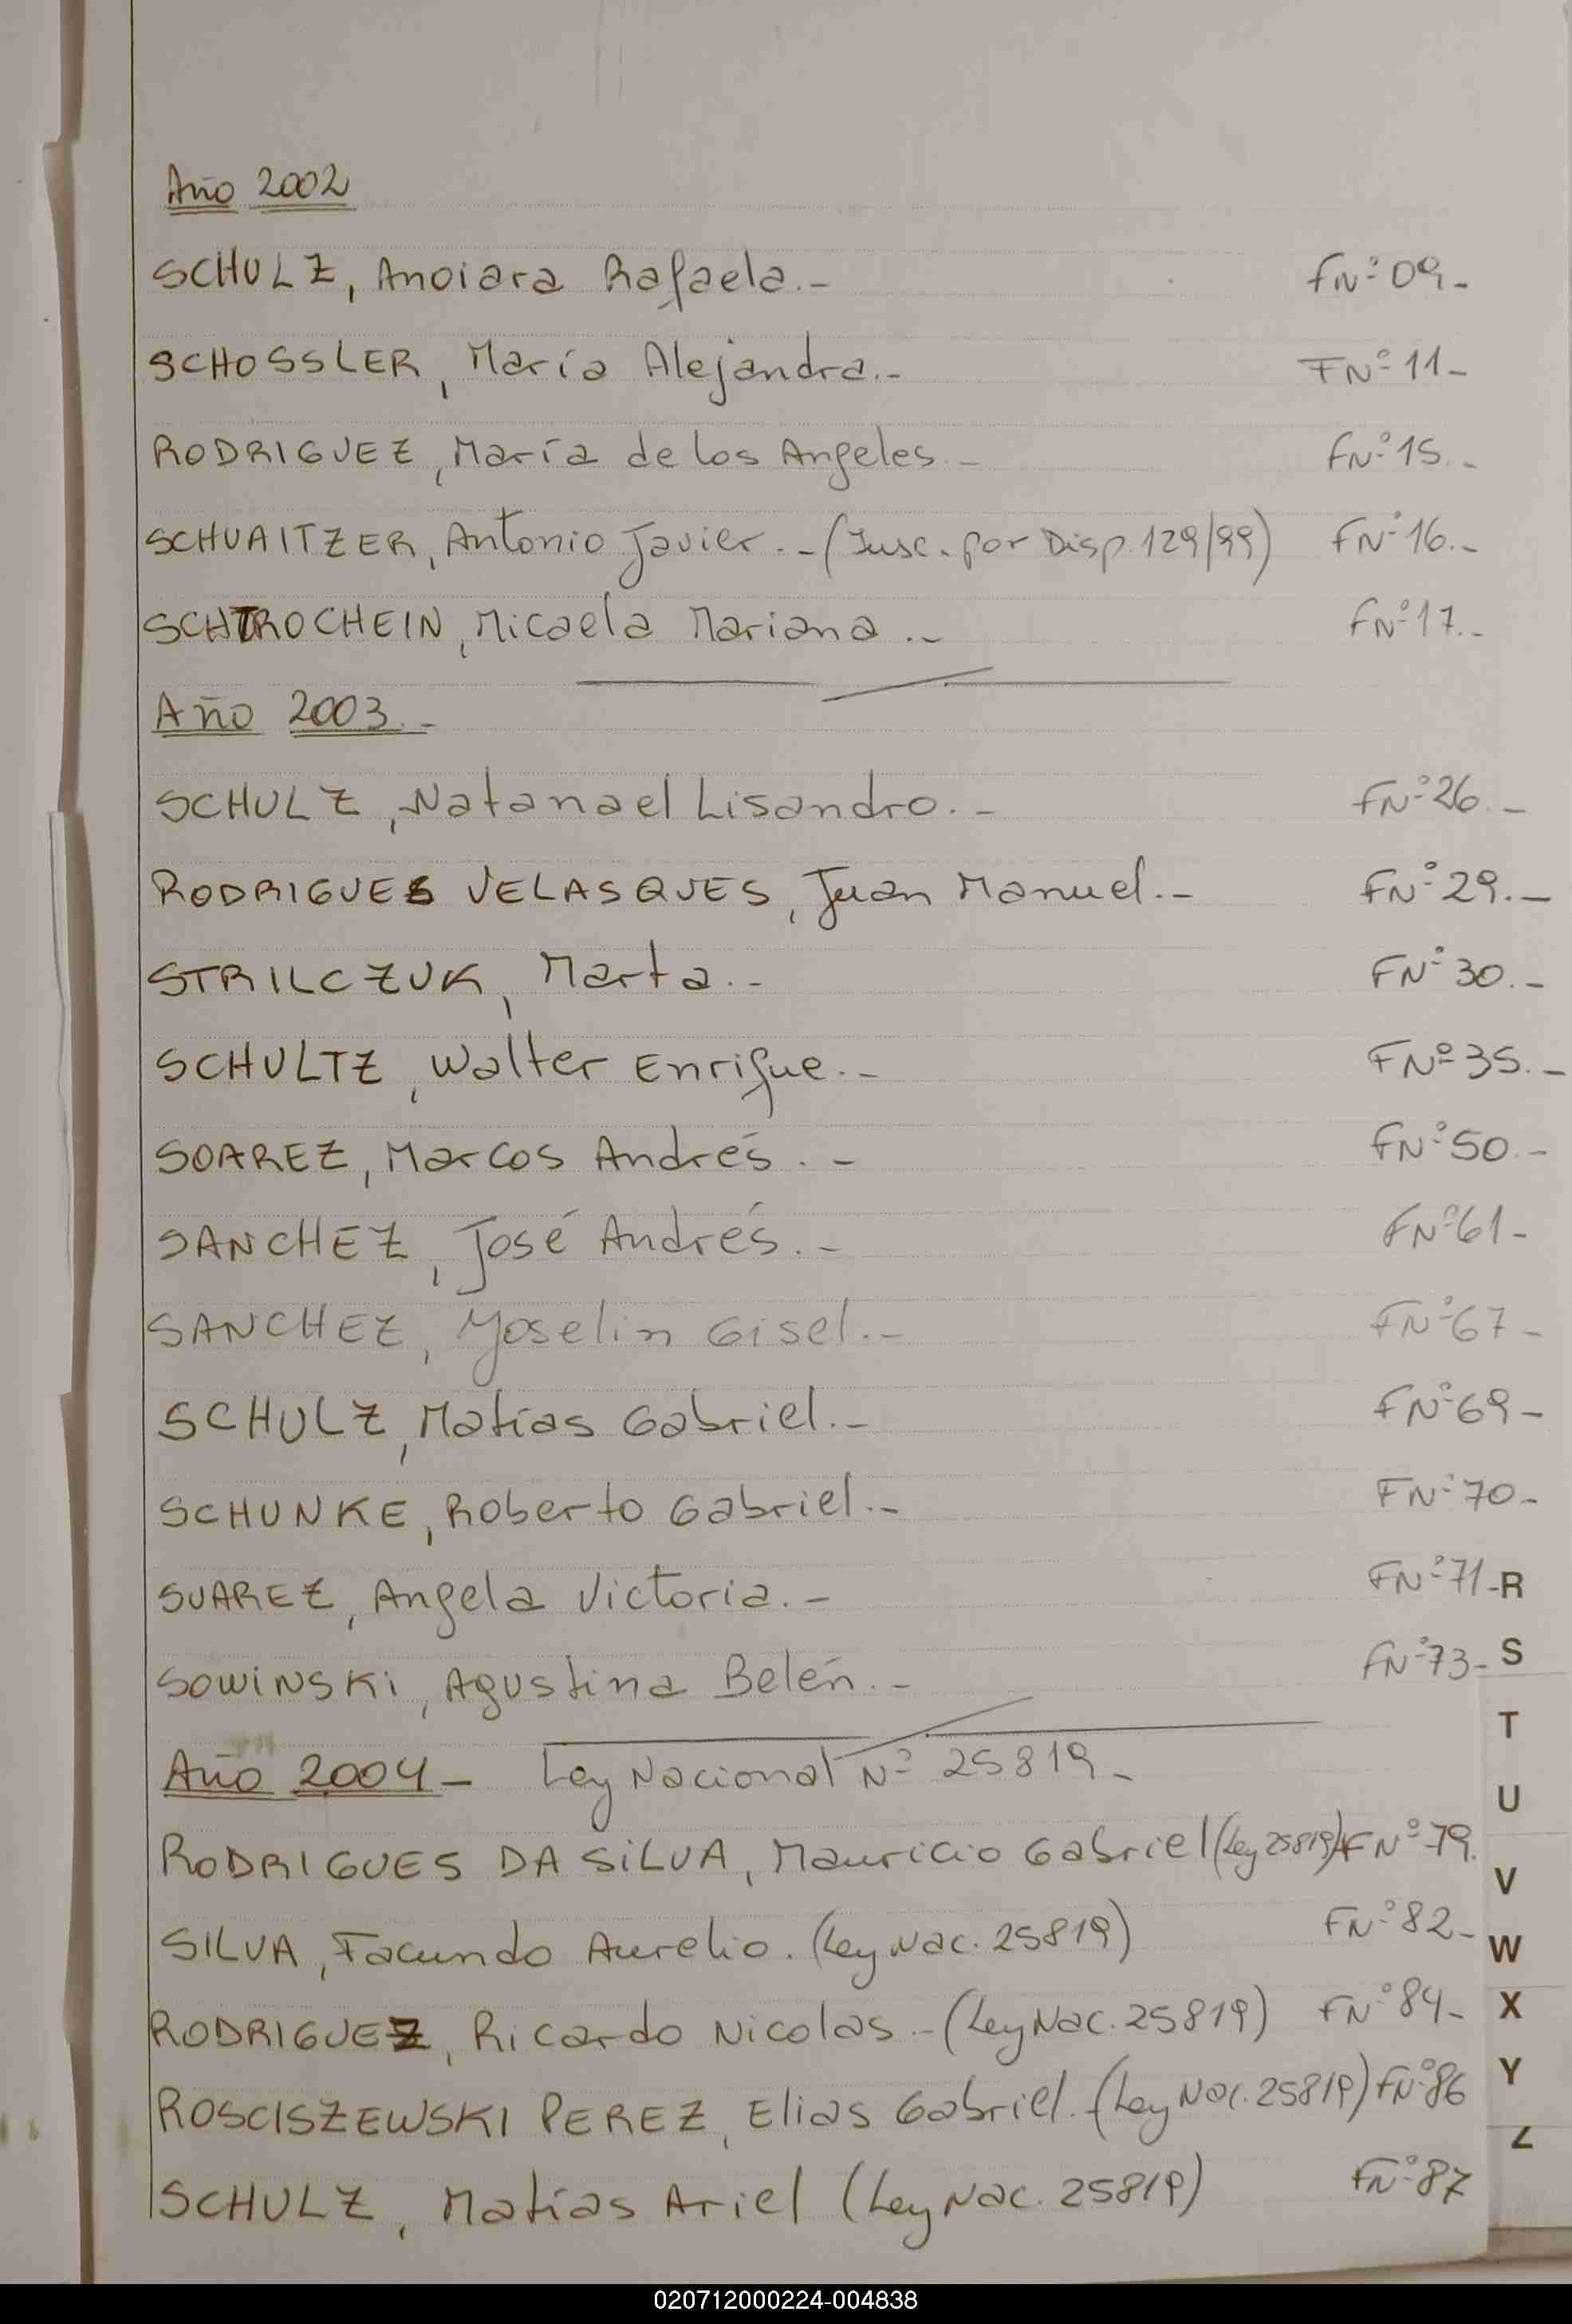 Año 2002
SCHULZ, Anoiara Rafaela.- FNº 09-
SCHOSSLER, María Alejandra.- FNº 11-
RODRIGUEZ, María de los Angeles.- FNº 15.-
SCHUAITZER, Antonio Javier.-(Insc. por Disp. 129/99) FNº 16.-
SCHTROCHEIN, Micaela Mariana.- FNº 17.-
Año 2003.-
SCHULZ, Natanael Lisandro.- FNº 26.-
RODRIGUES VELASQUES, Juan Manuel.- FNº 29.-
STRILCZUK, Marta.- FNº 30.-
SCHULTZ, Walter Enrique.- FNº 35.-
SOAREZ, Marcos Andrés.- FNº 50.-
SANCHEZ, José Andrés.- FNº 61-
SANCHEZ, Yoselin Gisel.- FNº 67-
SCHULZ, Matías Gabriel.- FNº 69-
SCHUNKE, Roberto Gabriel.- FNº 70-
SUAREZ, Angela Victoria.- FNº 71- R
SOWINSKI, Agustina Belén.- FNº 73- S
T
Año 2004- Ley Nacional Nº 25819-
U
RODRIGUES DA SILVA, Mauricio Gabriel (Ley 25819) FNº 79.
V
SILVA, Facundo Aurelio. (Ley Nac. 25819) FNº 82-
W
RODRIGUEZ, Ricardo Nicolas.-(Ley Nac. 25819) FNº 84- X
ROSCISZEWSKI PEREZ, Elias Gabriel. (Ley Nac. 25819) FNº 86 Y
Z
SCHULZ, Matías Ariel (Ley Nac. 25819) FNº 87
020712000224-004838